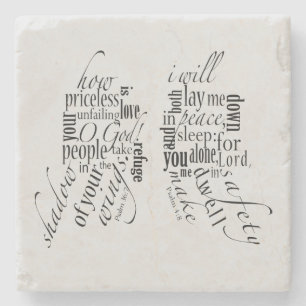 how
priceless
is
unfailing
love
your
O, God!
people
take
refuge
in
the
shadow
of your
wings.
Psalm 36:7
i will
both
lay me
down
in peace,
and
sleep:
for
you
alone,
Lord,
me
in
make
dwell
safety
Psalm 4:8